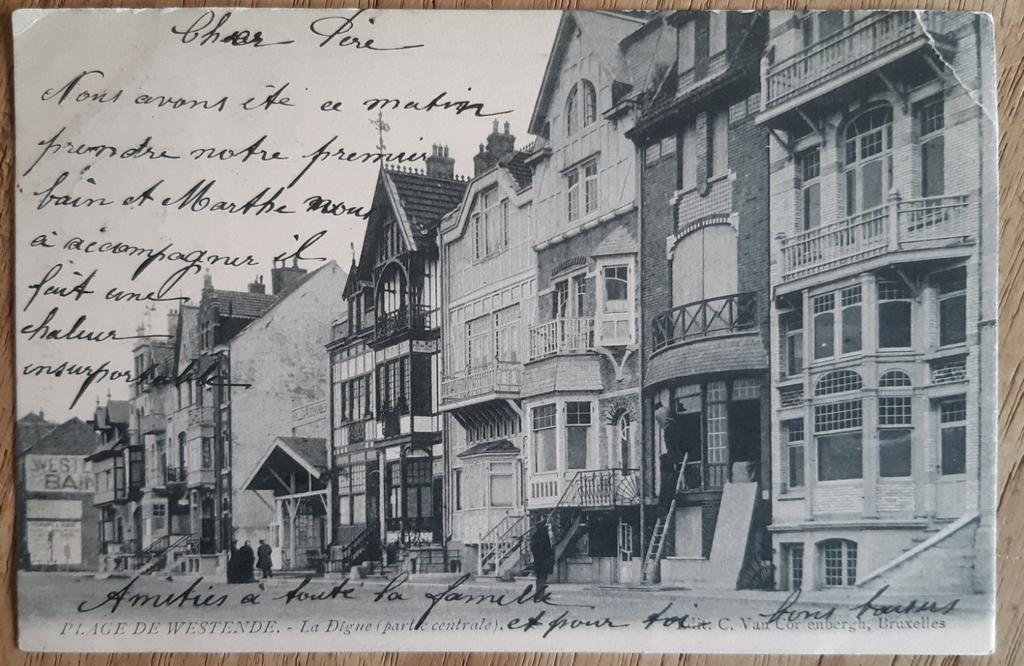 Cher Père
Nous avons été ce matin
prendre notre premier
bain et Marthe nous
a accompagner il
fait une
chaleur
insurportable
WEST
BAIN
Amitiés à toute la famille
et pour toi bons baisers
PLAGE DE WESTENDE. - La Digue (partie centrale).
Edit: C. Van Cortenbergh, Bruxelles